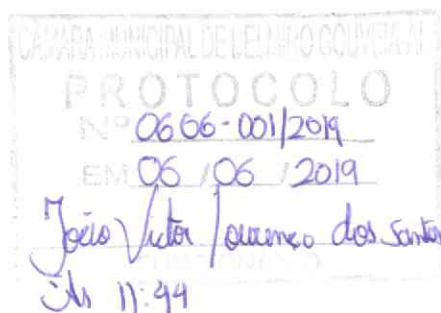 CÂMARA MUNICIPAL DE DELMIRO GOUVEIA-AL
PROTOCOLO
Nº 0606-001/2019
EM 06 / 06 / 2019
João Victor Lourenço dos Santos
às 11:44